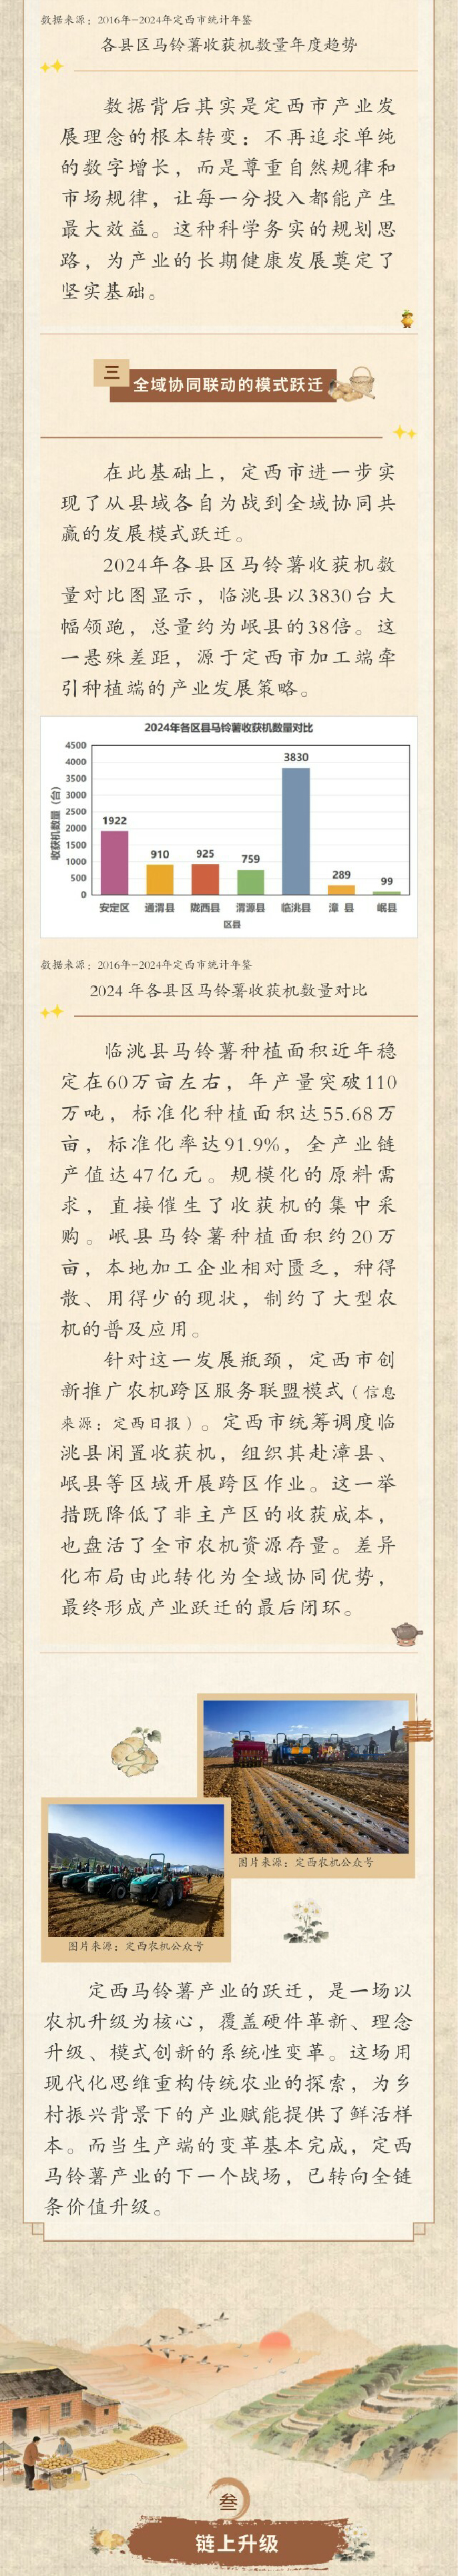 数据来源：2016年-2024年定西市统计年鉴
各县区马铃薯收获机数量年度趋势
数据背后其实是定西市产业发
展理念的根本转变：不再追求单纯
的数字增长，而是尊重自然规律和
市场规律，让每一分投入都能产生
最大效益。这种科学务实的规划思
路，为产业的长期健康发展奠定了
坚实基础。
三
全域协同联动的模式跃迁
在此基础上，定西市进一步实
现了从县域各自为战到全域协同共
赢的发展模式跃迁。
2024年各县区马铃薯收获机数
量对比图显示，临洮县以3830台大
幅领跑，总量约为岷县的38倍。这
一悬殊差距，源于定西市加工端牵
引种植端的产业发展策略。
2024年各区县马铃薯收获机数量对比
收获机数量（台）
4500
4000
3500
3000
2500
2000
1500
1000
500
0
1922
910
925
759
3830
289
99
安定区 通渭县 陇西县 渭源县 临洮县 漳 县 岷县
区县
数据来源：2016年-2024年定西市统计年鉴
2024 年各县区马铃薯收获机数量对比
临洮县马铃薯种植面积近年稳
定在60万亩左右，年产量突破110
万吨，标准化种植面积达55.68万
亩，标准化率达91.9%，全产业链
产值达47亿元。规模化的原料需
求，直接催生了收获机的集中采
购。岷县马铃薯种植面积约20万
亩，本地加工企业相对匮乏，种得
散、用得少的现状，制约了大型农
机的普及应用。
针对这一发展瓶颈，定西市创
新推广农机跨区服务联盟模式（信息
来源：定西日报）。定西市统筹调度临
洮县闲置收获机，组织其赴漳县、
岷县等区域开展跨区作业。这一举
措既降低了非主产区的收获成本，
也盘活了全市农机资源存量。差异
化布局由此转化为全域协同优势，
最终形成产业跃迁的最后闭环。
图片来源：定西农机公众号
图片来源：定西农机公众号
定西马铃薯产业的跃迁，是一场以
农机升级为核心，覆盖硬件革新、理念
升级、模式创新的系统性变革。这场用
现代化思维重构传统农业的探索，为乡
村振兴背景下的产业赋能提供了鲜活样
本。而当生产端的变革基本完成，定西
马铃薯产业的下一个战场，已转向全链
条价值升级。
叁
链上升级